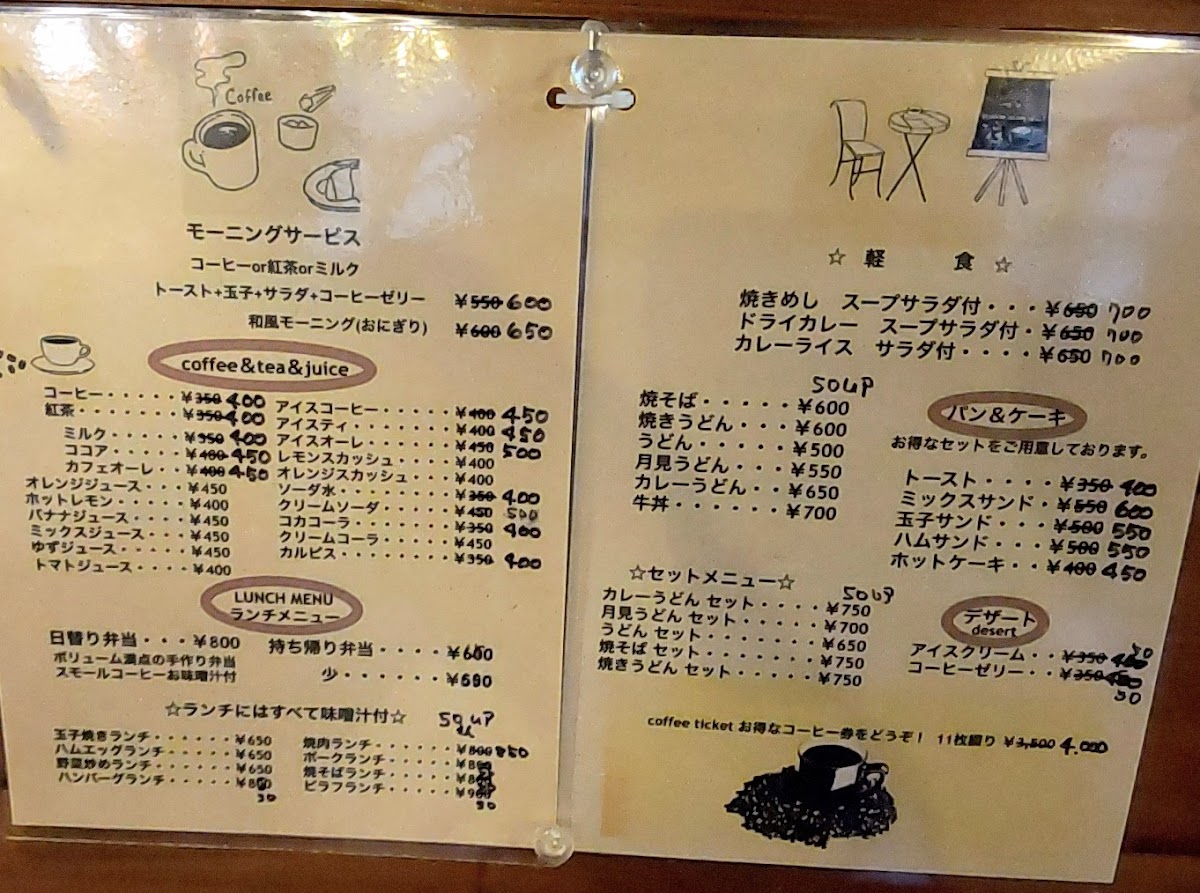 Coffee
モーニングサービス
コーヒーor紅茶orミルク
トースト+玉子+サラダ+コーヒーゼリー ¥550 600
和風モーニング(おにぎり) ¥600 650
coffee&tea&juice
コーヒー・・・・・¥350 400
紅茶・・・・・・・¥350 400
ミルク・・・・・¥350 400
ココア・・・・・¥400 450
カフェオーレ・・¥400 450
オレンジジュース・・・¥450
ホットレモン・・・・・¥400
バナナジュース・・・・¥450
ミックスジュース・・・¥450
ゆずジュース・・・・・¥450
トマトジュース・・・・¥400
アイスコーヒー・・・・・¥400 450
アイスティ・・・・・・・¥400 450
アイスオーレ・・・・・・¥450 500
レモンスカッシュ・・・・¥400
オレンジスカッシュ・・・¥400
ソーダ水・・・・・・・・¥350 400
クリームソーダ・・・・・¥450 500
コカコーラ・・・・・・・¥350 400
クリームコーラ・・・・・¥450
カルピス・・・・・・・・¥350 400
LUNCH MENU
ランチメニュー
日替り弁当・・・¥800
ボリューム満点の手作り弁当
スモールコーヒーお味噌汁付
持ち帰り弁当・・・・
少・・・・・・
☆ランチにはすべて味噌汁付☆ soup
玉子焼きランチ・・・・・・¥650
ハムエッグランチ・・・・・¥650
野菜炒めランチ・・・・・・¥650
ハンバーグランチ・・・・・
焼肉ランチ・・・・・・¥800 850
ポークランチ・・・・・
焼そばランチ・・・・・
ピラフランチ・・・・・
☆ 軽 食 ☆
焼きめし スープサラダ付・・・¥650 700
ドライカレー スープサラダ付・¥650 700
カレーライス サラダ付・・・・¥650 700
soup
焼そば・・・・・¥600
焼きうどん・・・¥600
うどん・・・・・¥500
月見うどん・・・¥550
カレーうどん・・¥650
牛丼・・・・・・¥700
パン&ケーキ
お得なセットをご用意しております。
トースト・・・・¥350 400
ミックスサンド・¥550 600
玉子サンド・・・¥500 550
ハムサンド・・・¥500 550
ホットケーキ・・¥400 450
☆セットメニュー☆ soup
カレーうどん セット・・・・¥750
月見うどん セット・・・・・¥700
うどん セット・・・・・・・¥650
焼そば セット・・・・・・・¥750
焼きうどん セット・・・・・¥750
デザート
desert
アイスクリーム・・¥350
コーヒーゼリー・・¥350
coffee ticket お得なコーヒー券をどうぞ! 11枚綴り ¥3,500 4.000